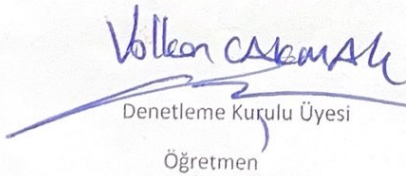 Volkan CAKMAK
Denetleme Kurulu Üyesi
Öğretmen